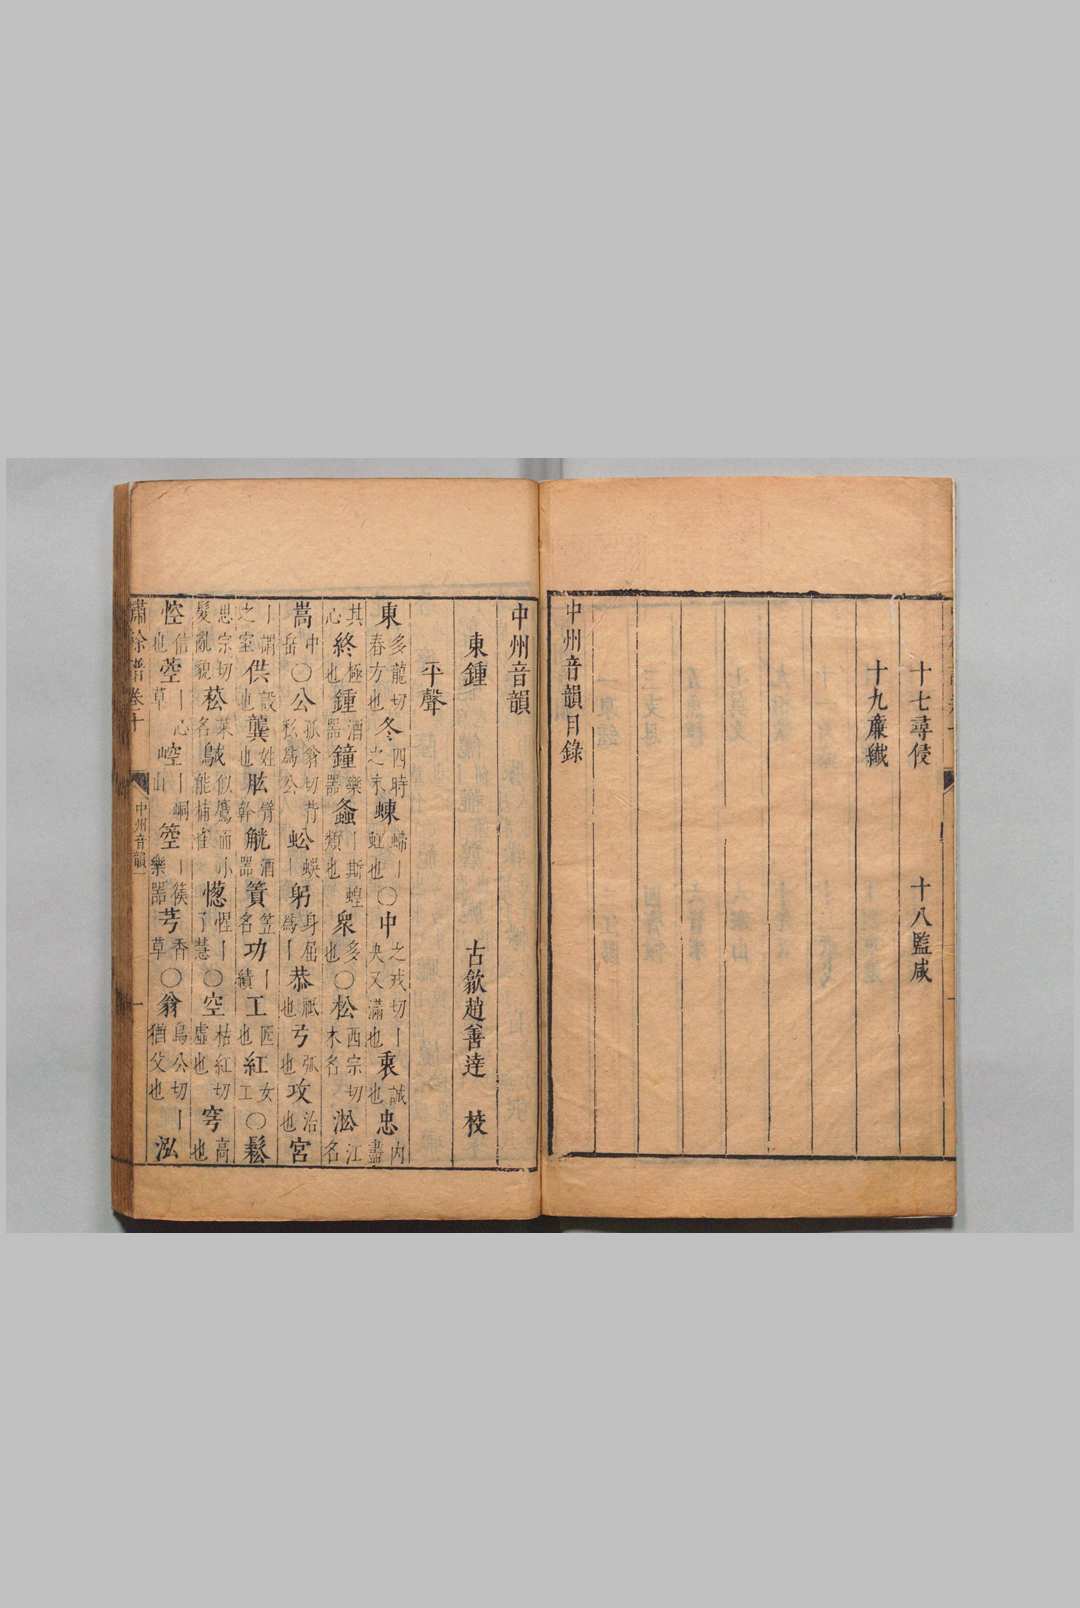 十七尋侵 十八監咸
十九廉纖
中州音韻目錄
中州音韻
東鍾 古歙趙善達 校
平聲
東多龍切春方也冬四時之末蝀螮丨虹也○中之戎切丨央又滿也衷誠也忠內盡
其心終極也鍾酒器鐘樂器螽丨斯蝗類也衆多也○松西宗切木名淞江名
嵩中岳○公孤翁切背私爲公蚣蜈丨躬身屈爲丨恭祇也弓弧也攻治也宮
丨謂之室供設也龔姓也肱臂幹觥酒器簣笠名功丨績工匠也紅女工○鬆
思宗切髮亂貌菘菜名似鷹而小能捕雀憽惺丨了慧○空枯紅切虛也穹高也
悾信也丨心草崆丨峒山箜丨篌樂器芎香草○翁烏公切丨猶父也泓
嘯餘譜卷十 中州音韻 一